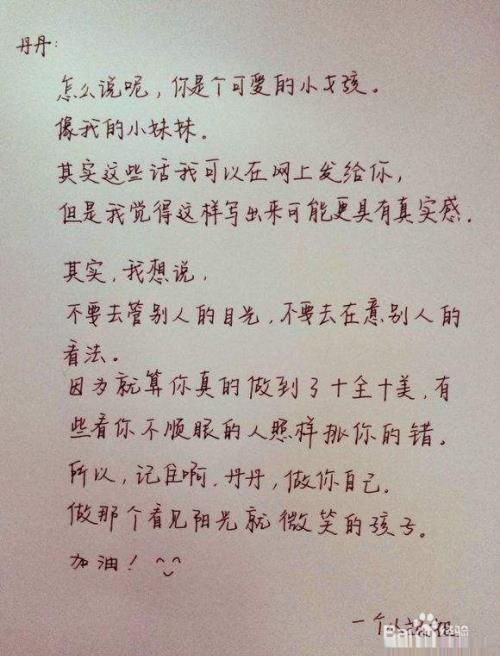 丹丹:
怎么说呢，你是个可爱的小女孩。
像我的小妹妹。
其实这些话我可以在网上发给你，
但是我觉得这样写出来可能更具有真实感．
其实，我想说，
不要去管别人的目光，不要去在意别人的
看法。
因为就算你真的做到了十全十美，有
些看你不顺眼的人照样挑你的错。
所以，记住啊．丹丹，做你自己．
做那个看见阳光就微笑的孩子。
加油！
一个
Bai 经验